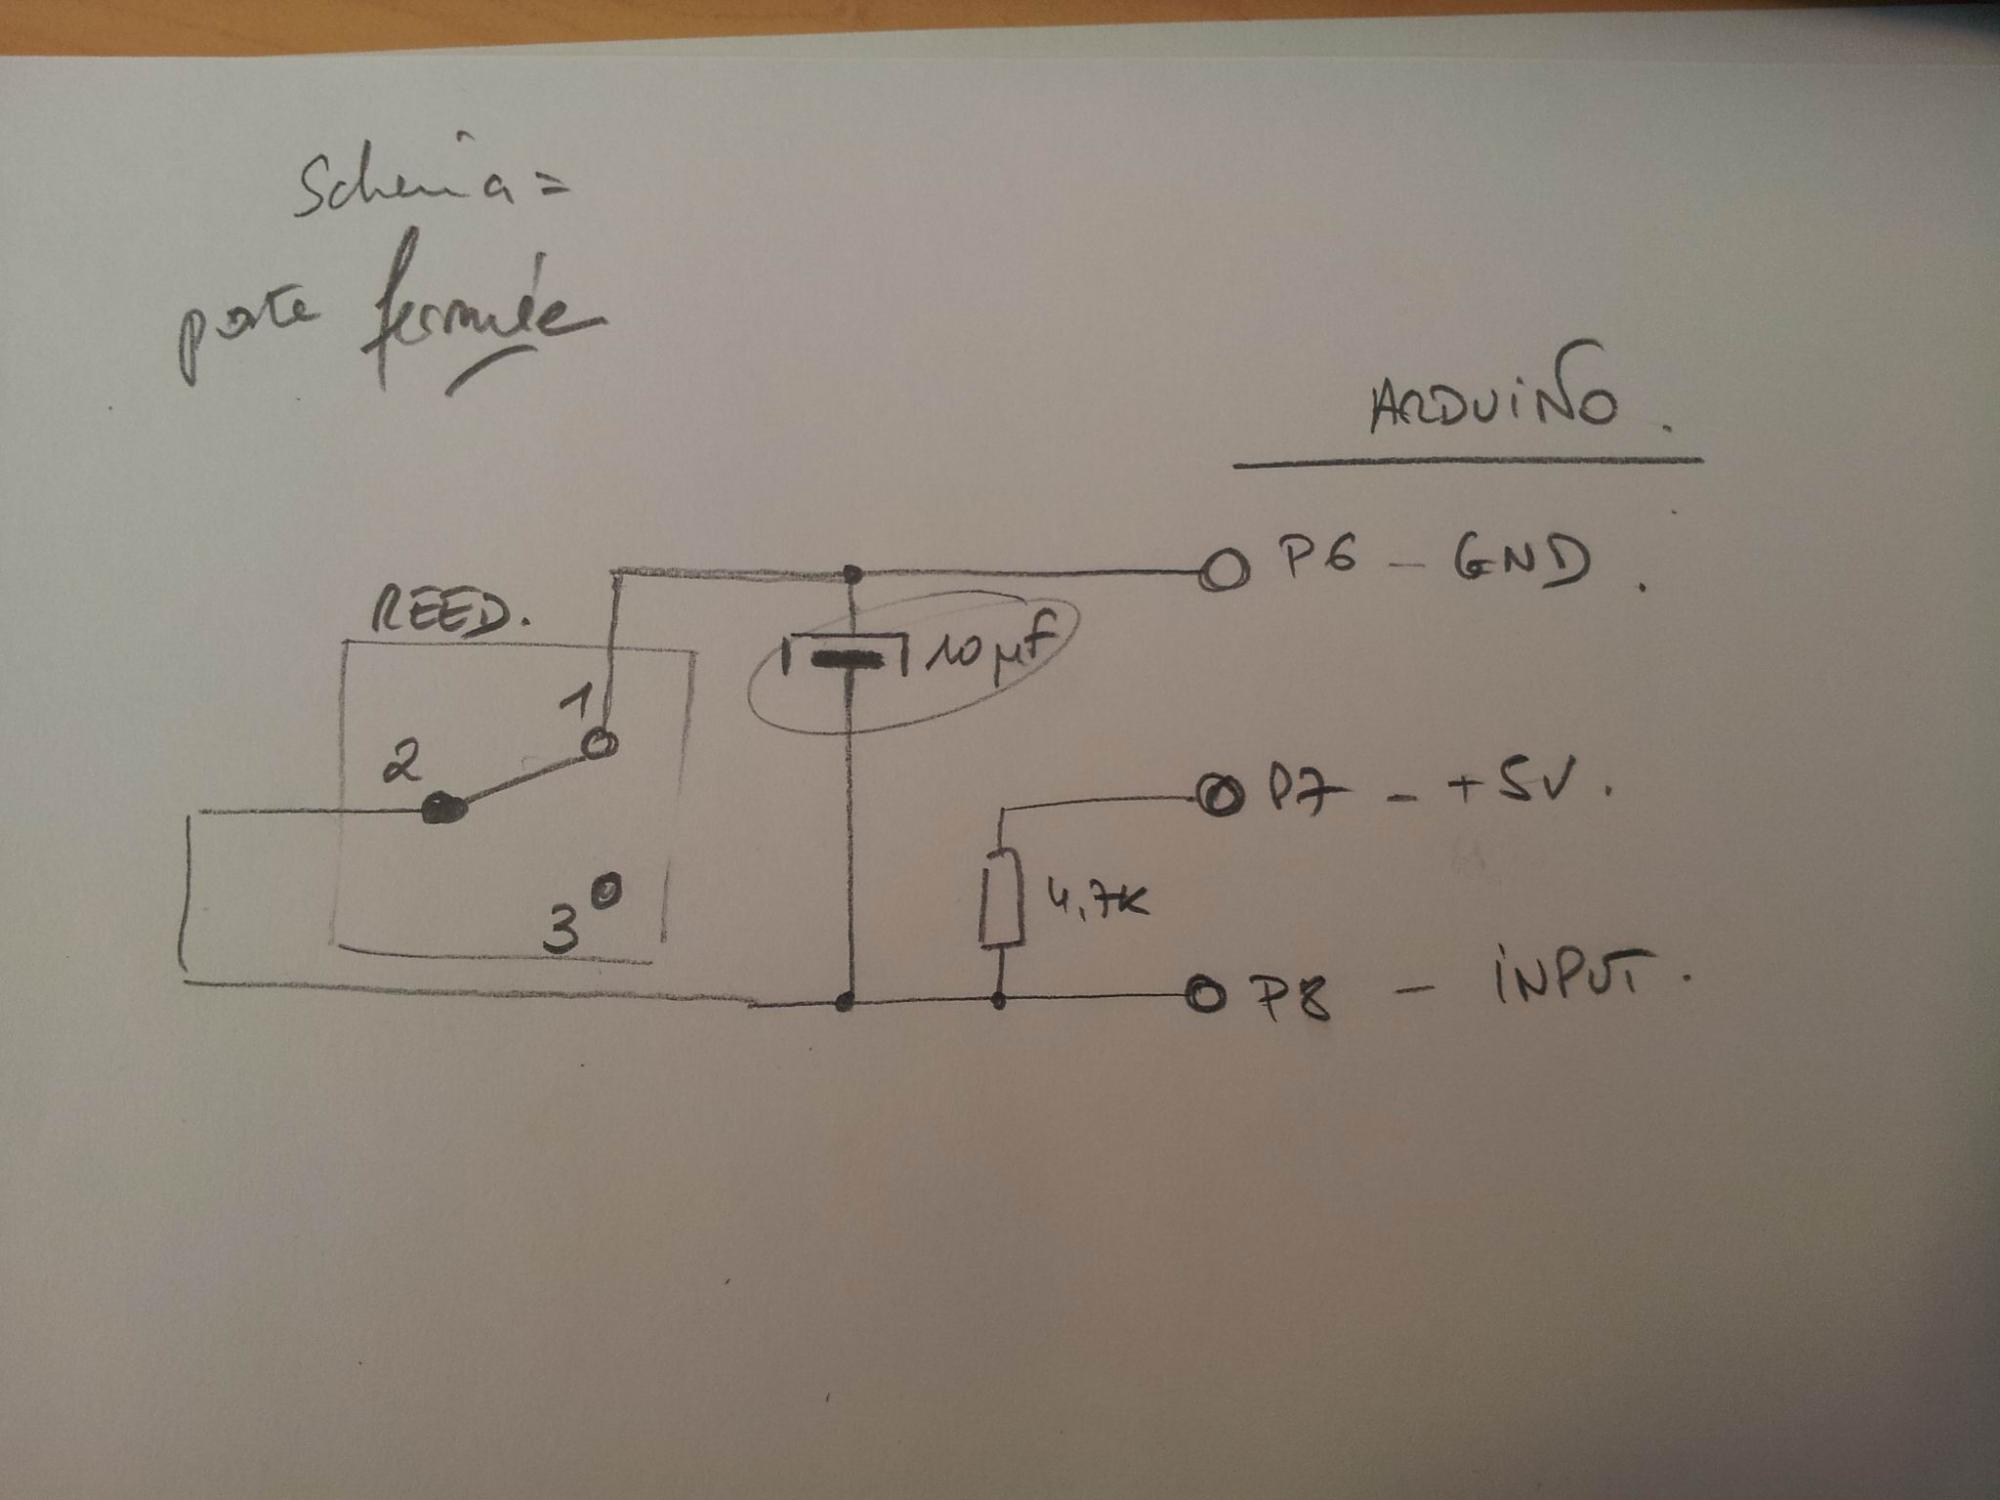 Schema =
porte fermée
ARDUiNO.
P6 - GND.
REED.
10µF
1
2
P7 - +5V.
4,7K
3
P8 - iNPUT.